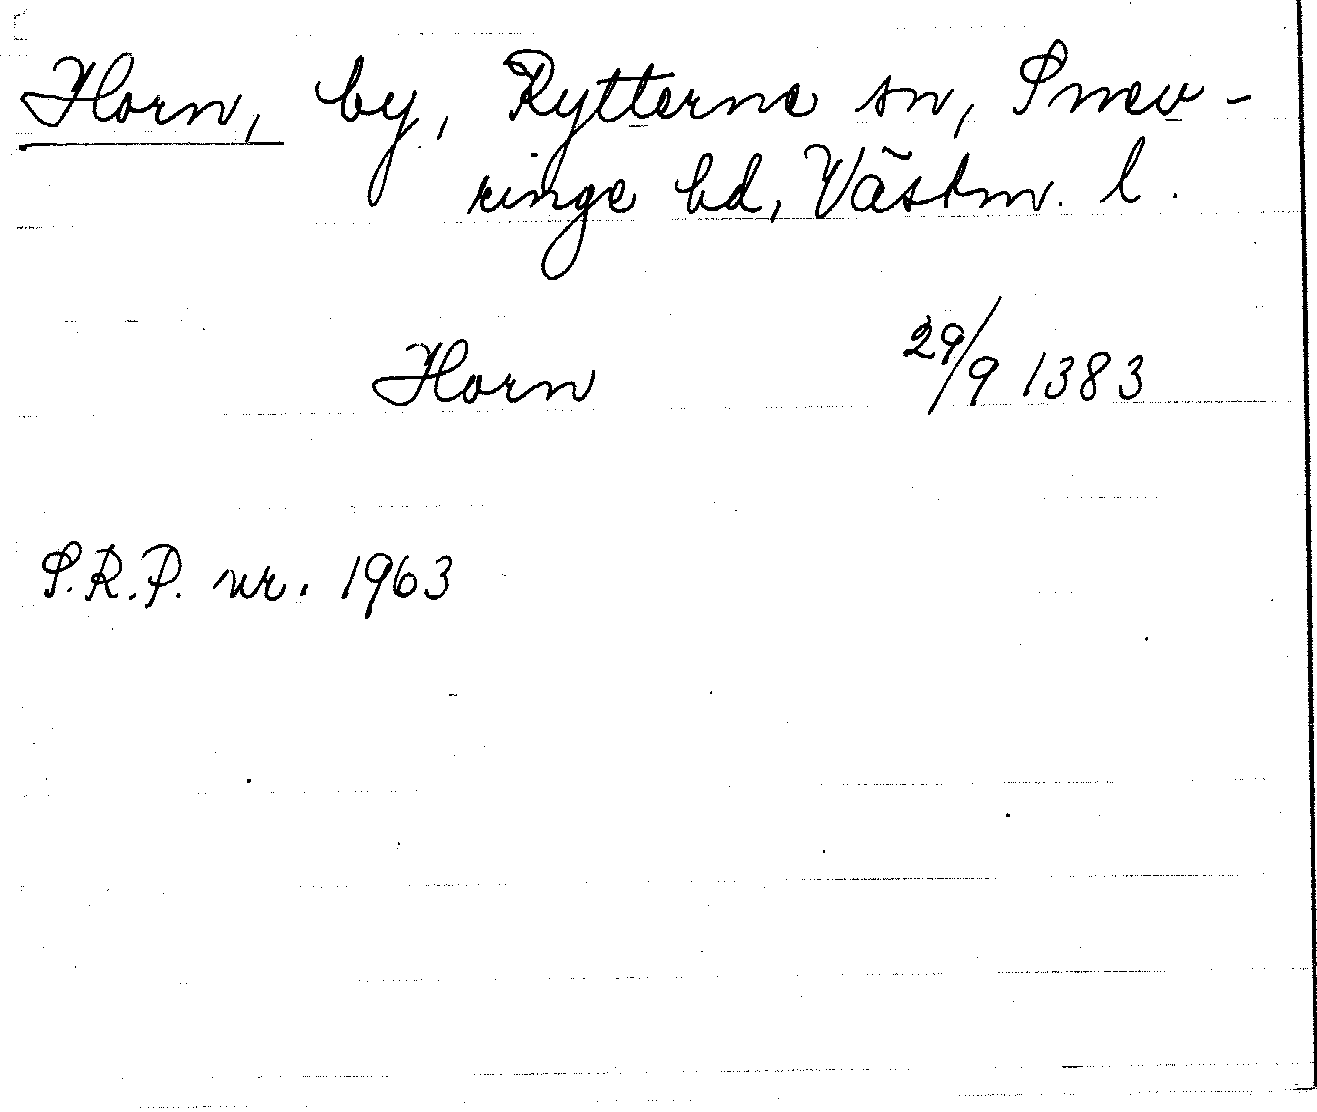 Horn, by, Rytterne sn, Snev-
ringe hd, Västm. l.
Horn 29/9 1383
S.R.P. nr. 1963